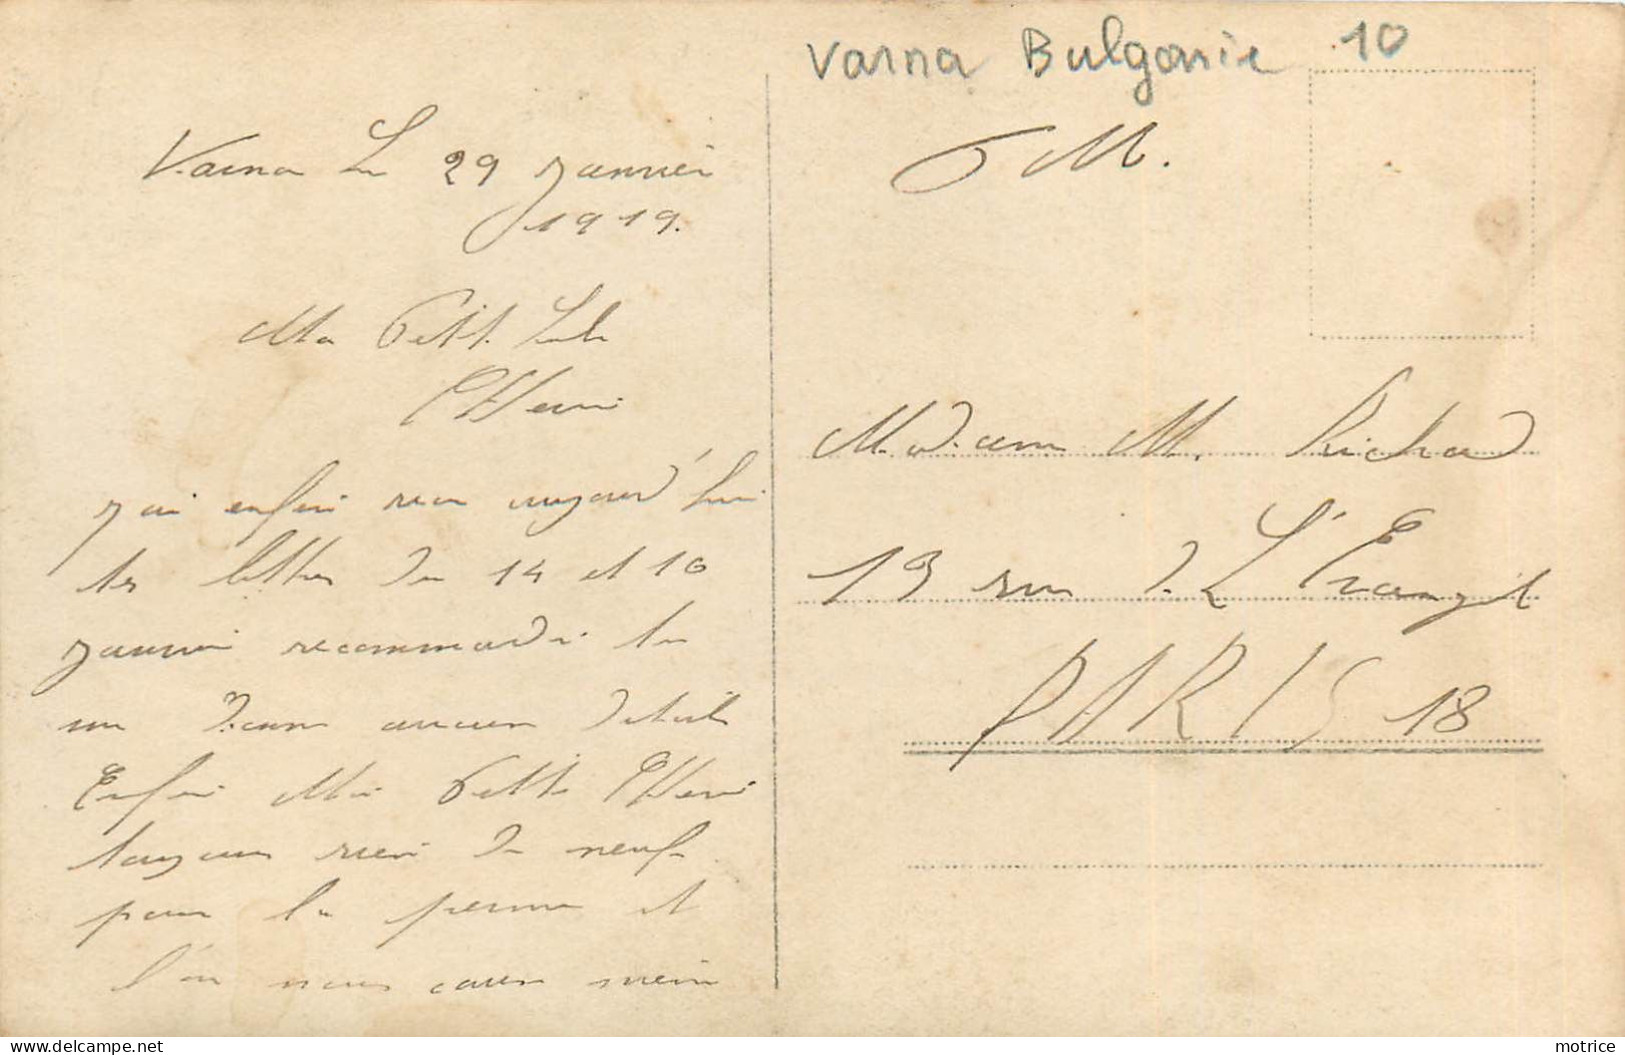 Varna Bulgarie 10
F M.
Varna Le 29 Janvier
1919.
Ma Petite
Cherie
J ai enfin recu aujourd'hui
tes lettres du 14 et 16
Janvier recommande tu
me donne aucun detail
Enfin Ma Petite Cherie
toujours rien de neuf
pour la perme et
l'on nous
Madame M. Richard
13 rue de L'Evangile
PARIS 18
www.delcampe.net
motrice